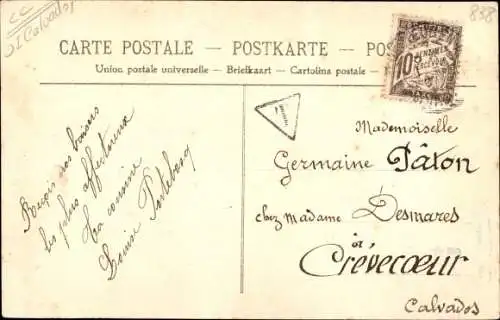 CC
01 Calvados
838
CARTE POSTALE — POSTKARTE — POS
Union postale universelle — Briefkaart — Cartolina postale
10c
CENTIMES
À PERCEVOIR
T
Reçois nos baisers
les plus affectueux
Ta cousine
Louise
Mademoiselle
Germaine Pâton
chez Madame Desmares
à
Crèvecœur
Calvados